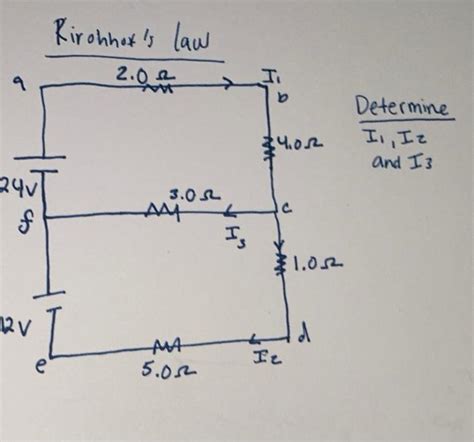 Kirohhox's law
2.0 Ω
I1
a
b
Determine
I1, I2
and I3
4.0Ω
24v
3.0 Ω
f
c
I3
1.0Ω
12V
d
I2
e
5.0Ω